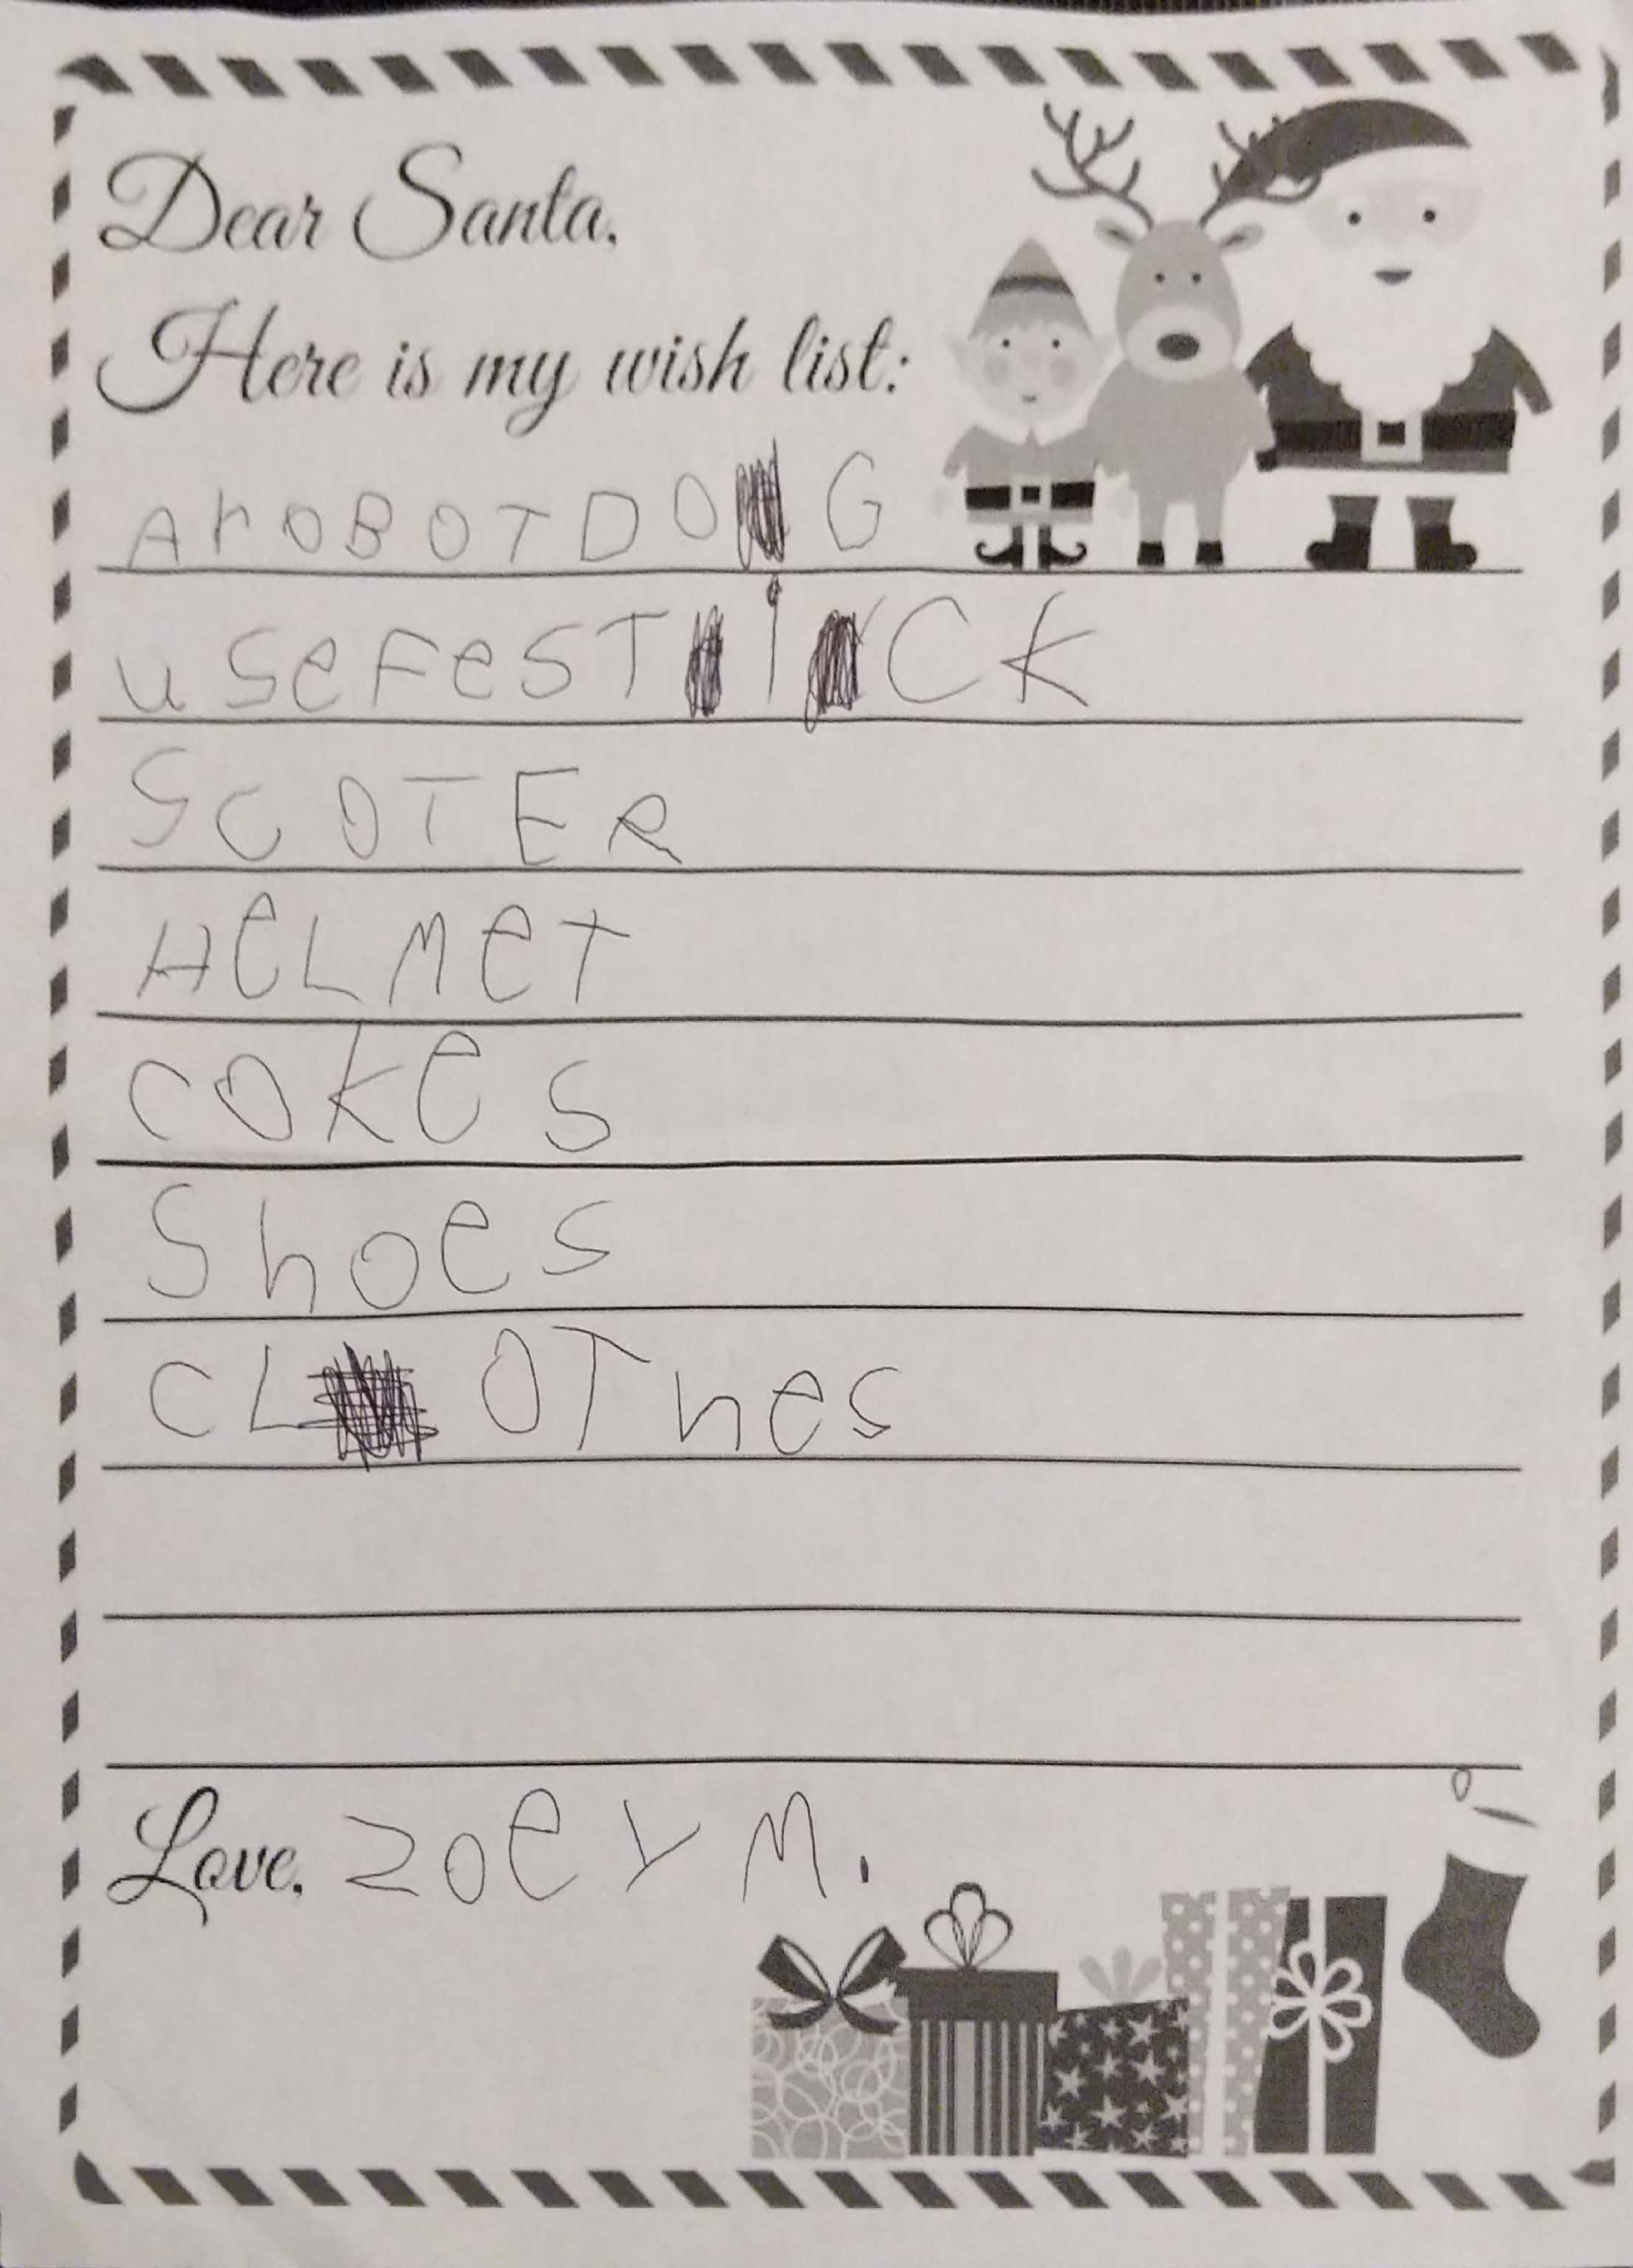 Dear Santa,
Here is my wish list:
ArOBOTDOG
useFesTiCK
SCOTER
HeLMeT
COKes
Shoes
CLOThes
Love, ZOeY M.